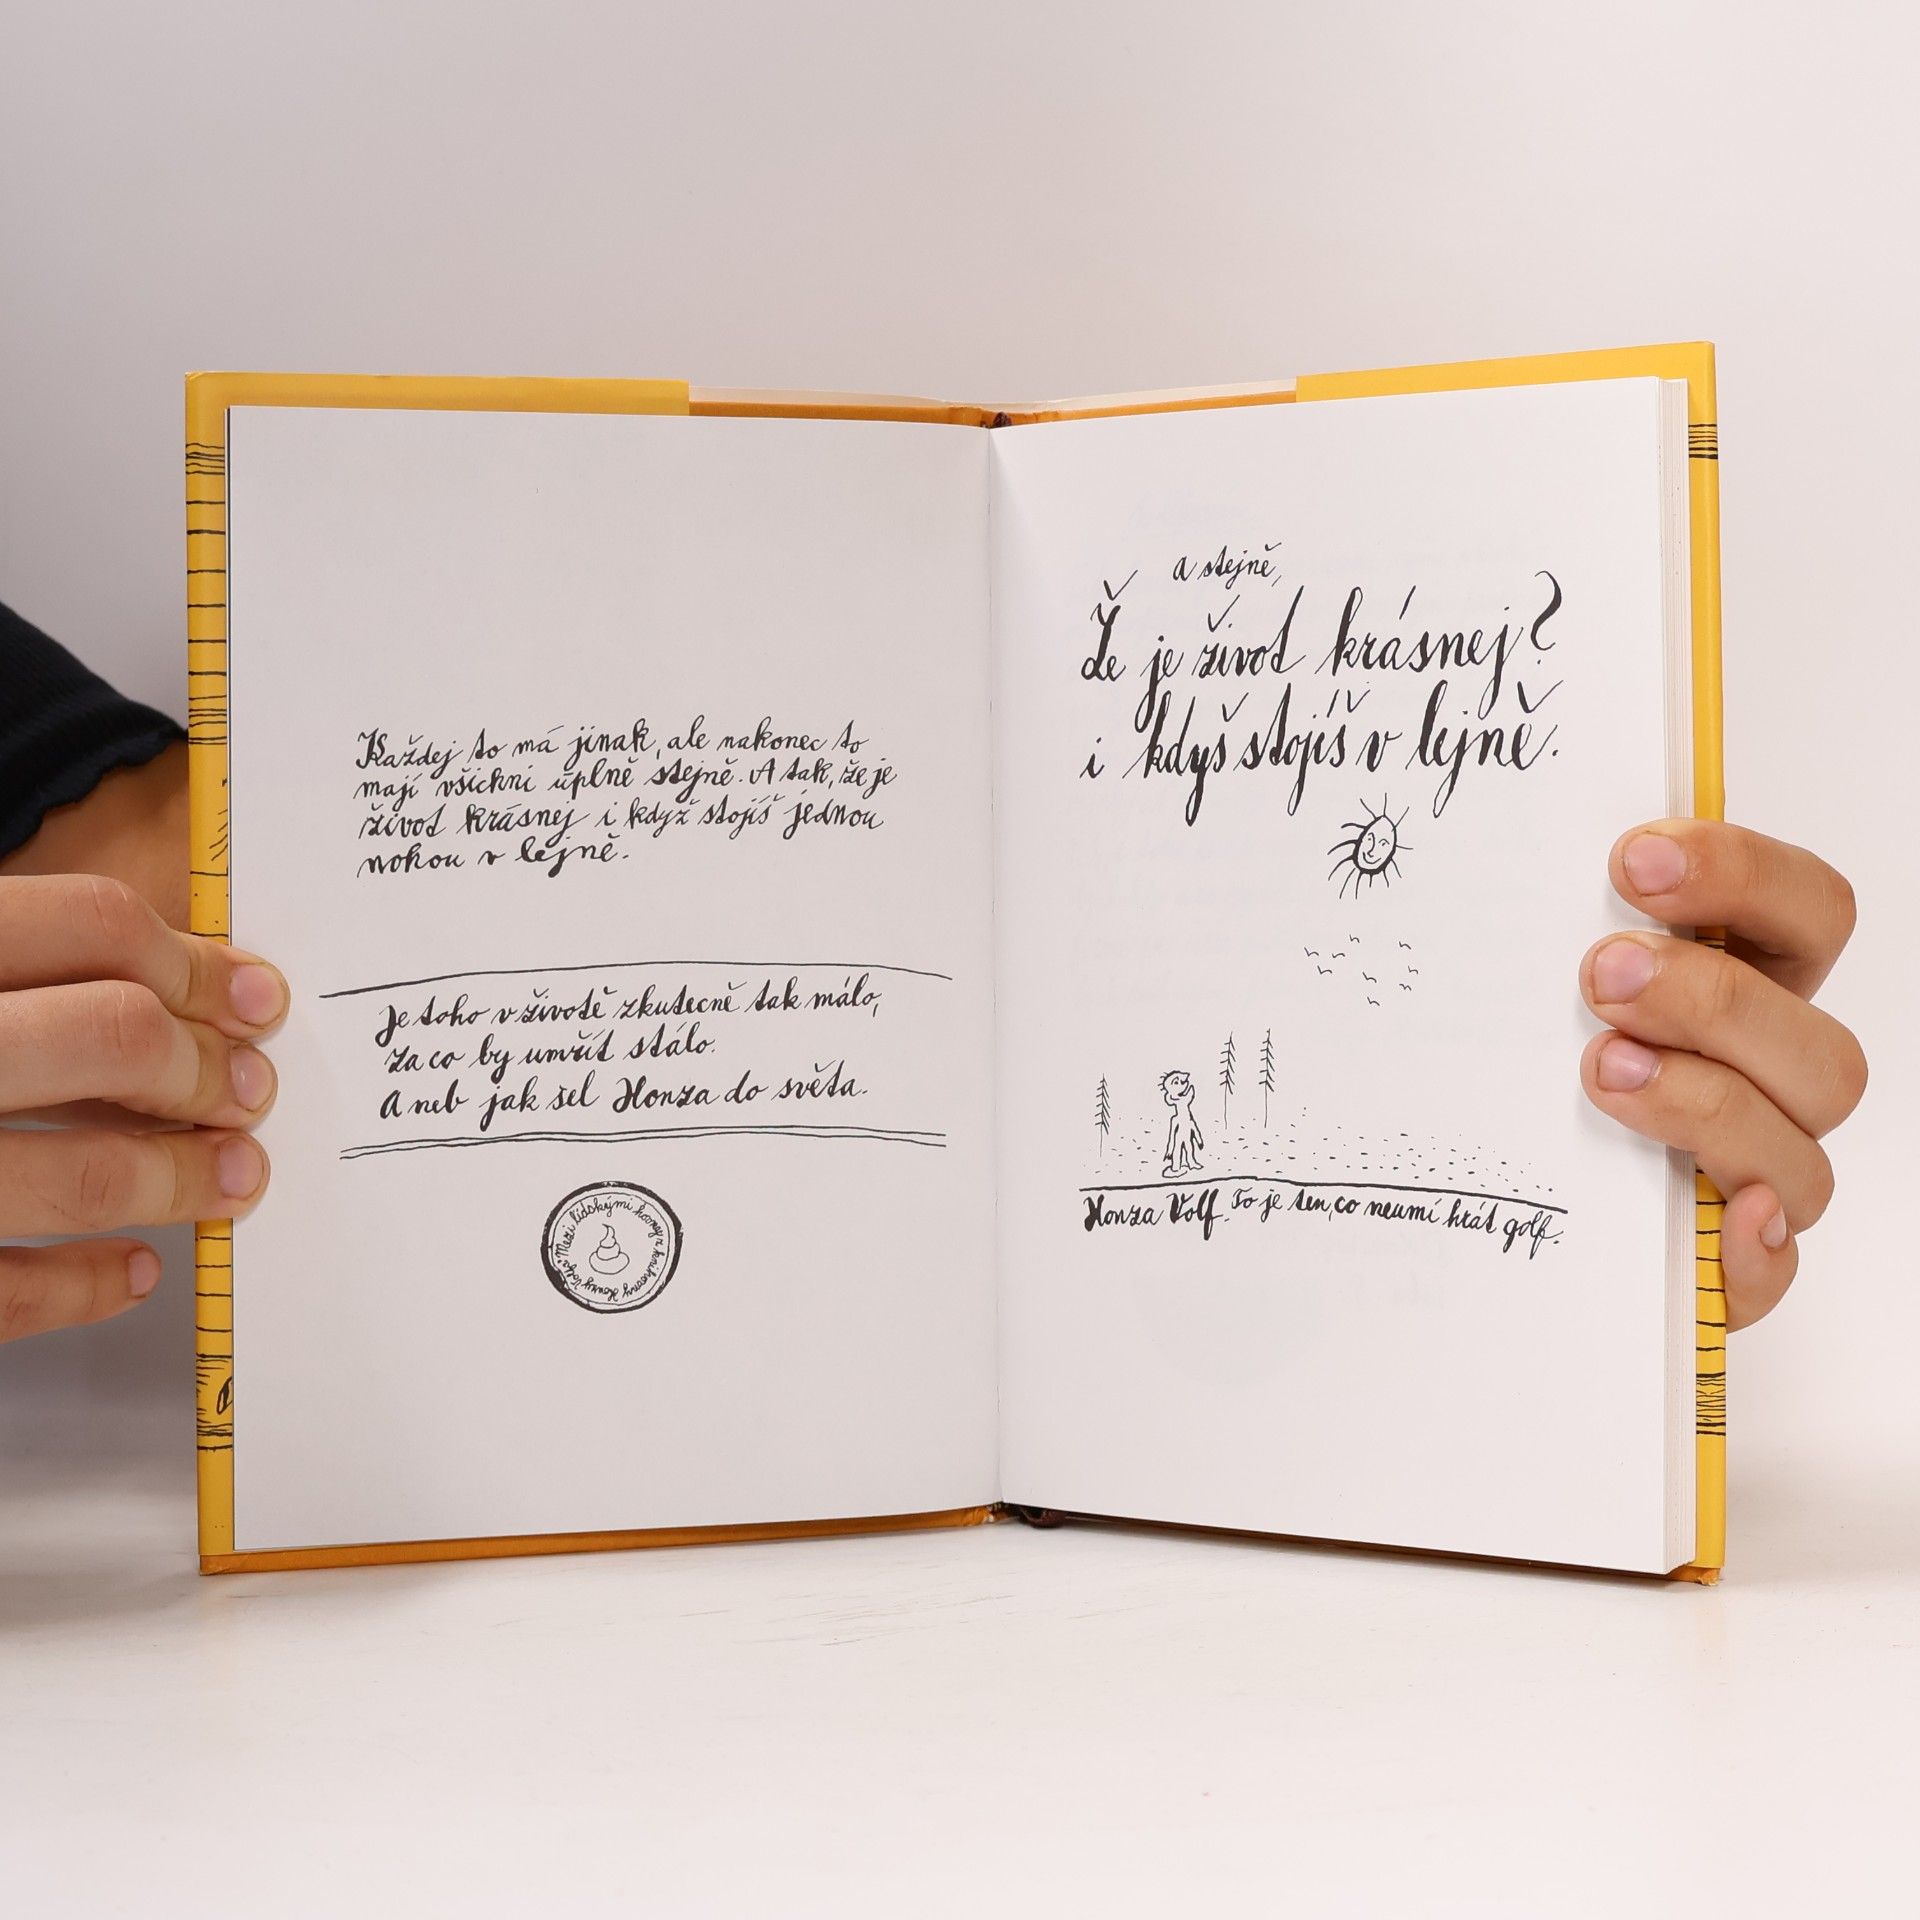 Každej to má jinak, ale nakonec to
mají všichni úplně stejně. A tak, že je
život krásnej i když stojíš jednou
nohou v lejně.
Je toho v životě zkutecně tak málo,
za co by umřít stálo.
A neb jak šel Honza do světa.
"Mezi lidskými hovney z knihovny Honzy Volfa"
a stejně,
Že je život krásnej?
i kdyš stojíš v lejně.
Honza Volf. To je ten, co neumí hrát golf.